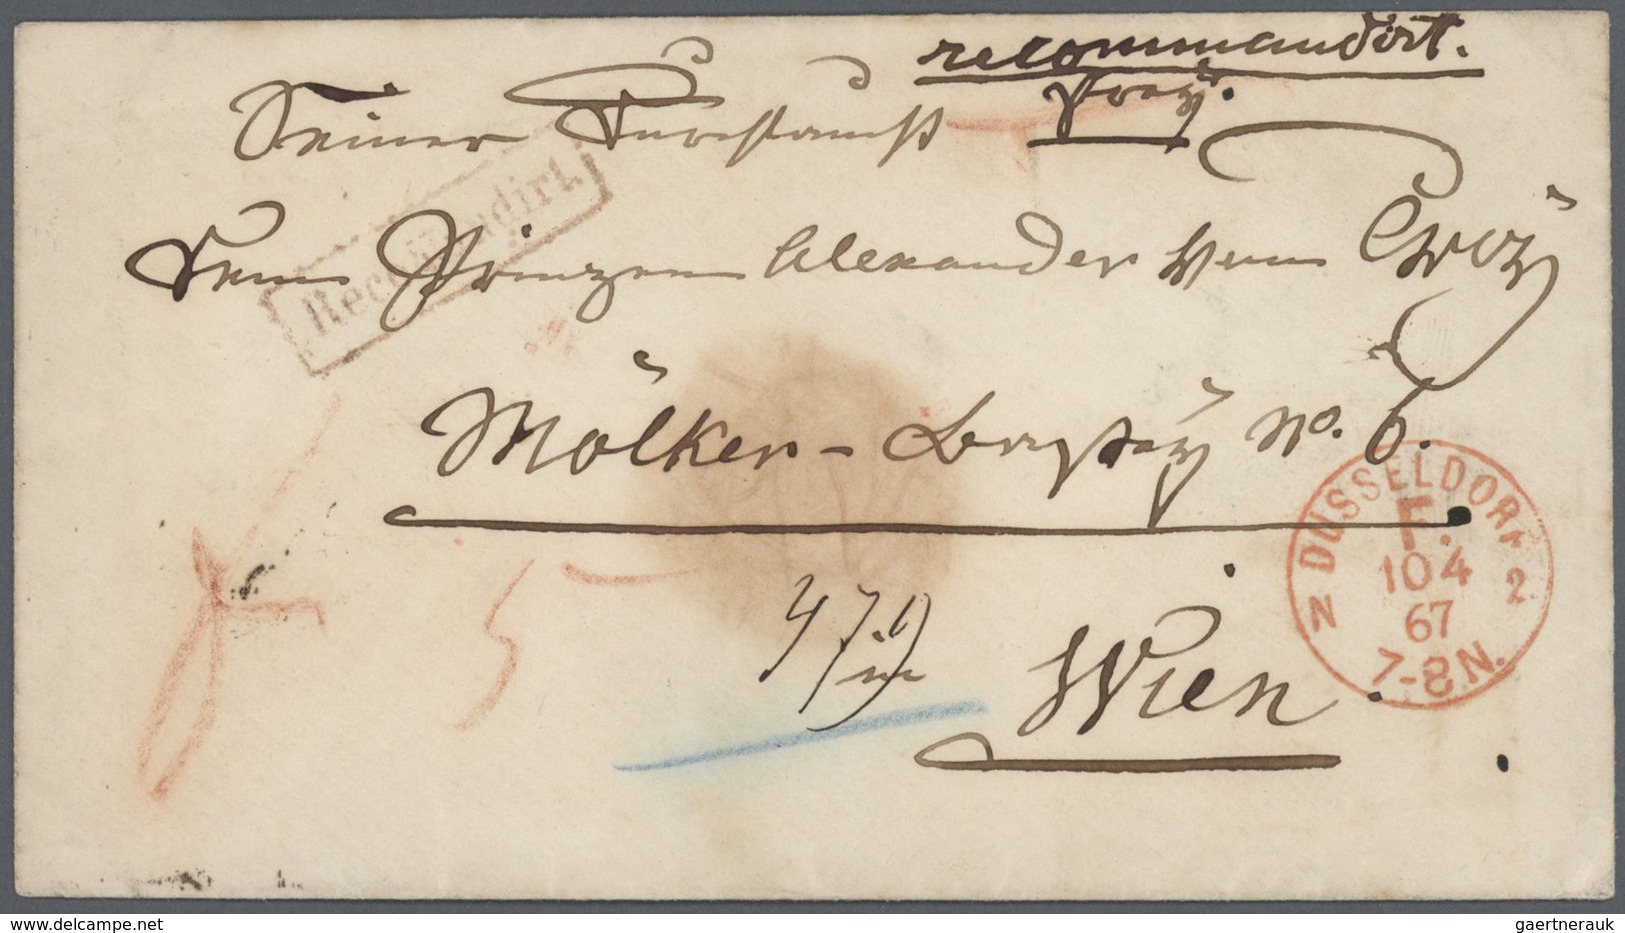 recommandirt.
frey.
Seiner Durchlaucht
Dem Prinzen Alexander von Croÿ
Recommandirt.
Mölker-Bastey No. 6.
Wien
DÜSSELDORF
F.
10 4
67
7-8 N.
N 2
5
delcampe.net
gaertnerauk